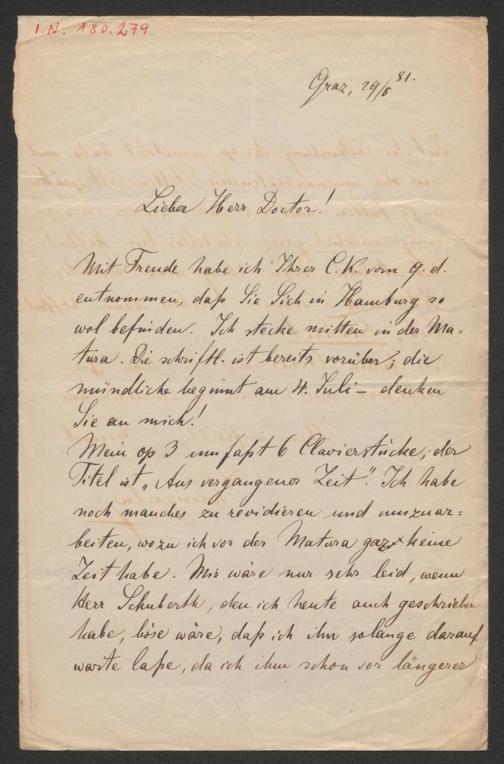 I.N. 180.279
Graz, 29/6 81.
Lieber Herr Doctor!
Mit Freude habe ich Ihrer C.K. vom 9. d.
entnommen, daß Sie Sich in Hamburg so
wol befinden. Ich stecke mitten in der Ma-
tura. Die schriftl. ist bereits vorüber; die
mündliche beginnt am 4. Juli – denken
Sie an mich!
Mein op 3 umfaßt 6 Clavierstücke; der
Titel ist „Aus vergangener Zeit". Ich habe
noch manches zu revidieren und umzuar-
beiten, wozu ich vor der Matura gar keine
Zeit habe. Mir wäre nur sehr leid, wenn
Herr Schuberth, den ich heute auch geschrieben
habe, böse wäre, daß ich ihn solange darauf
warte laße, da ich ihm schon vor längerer